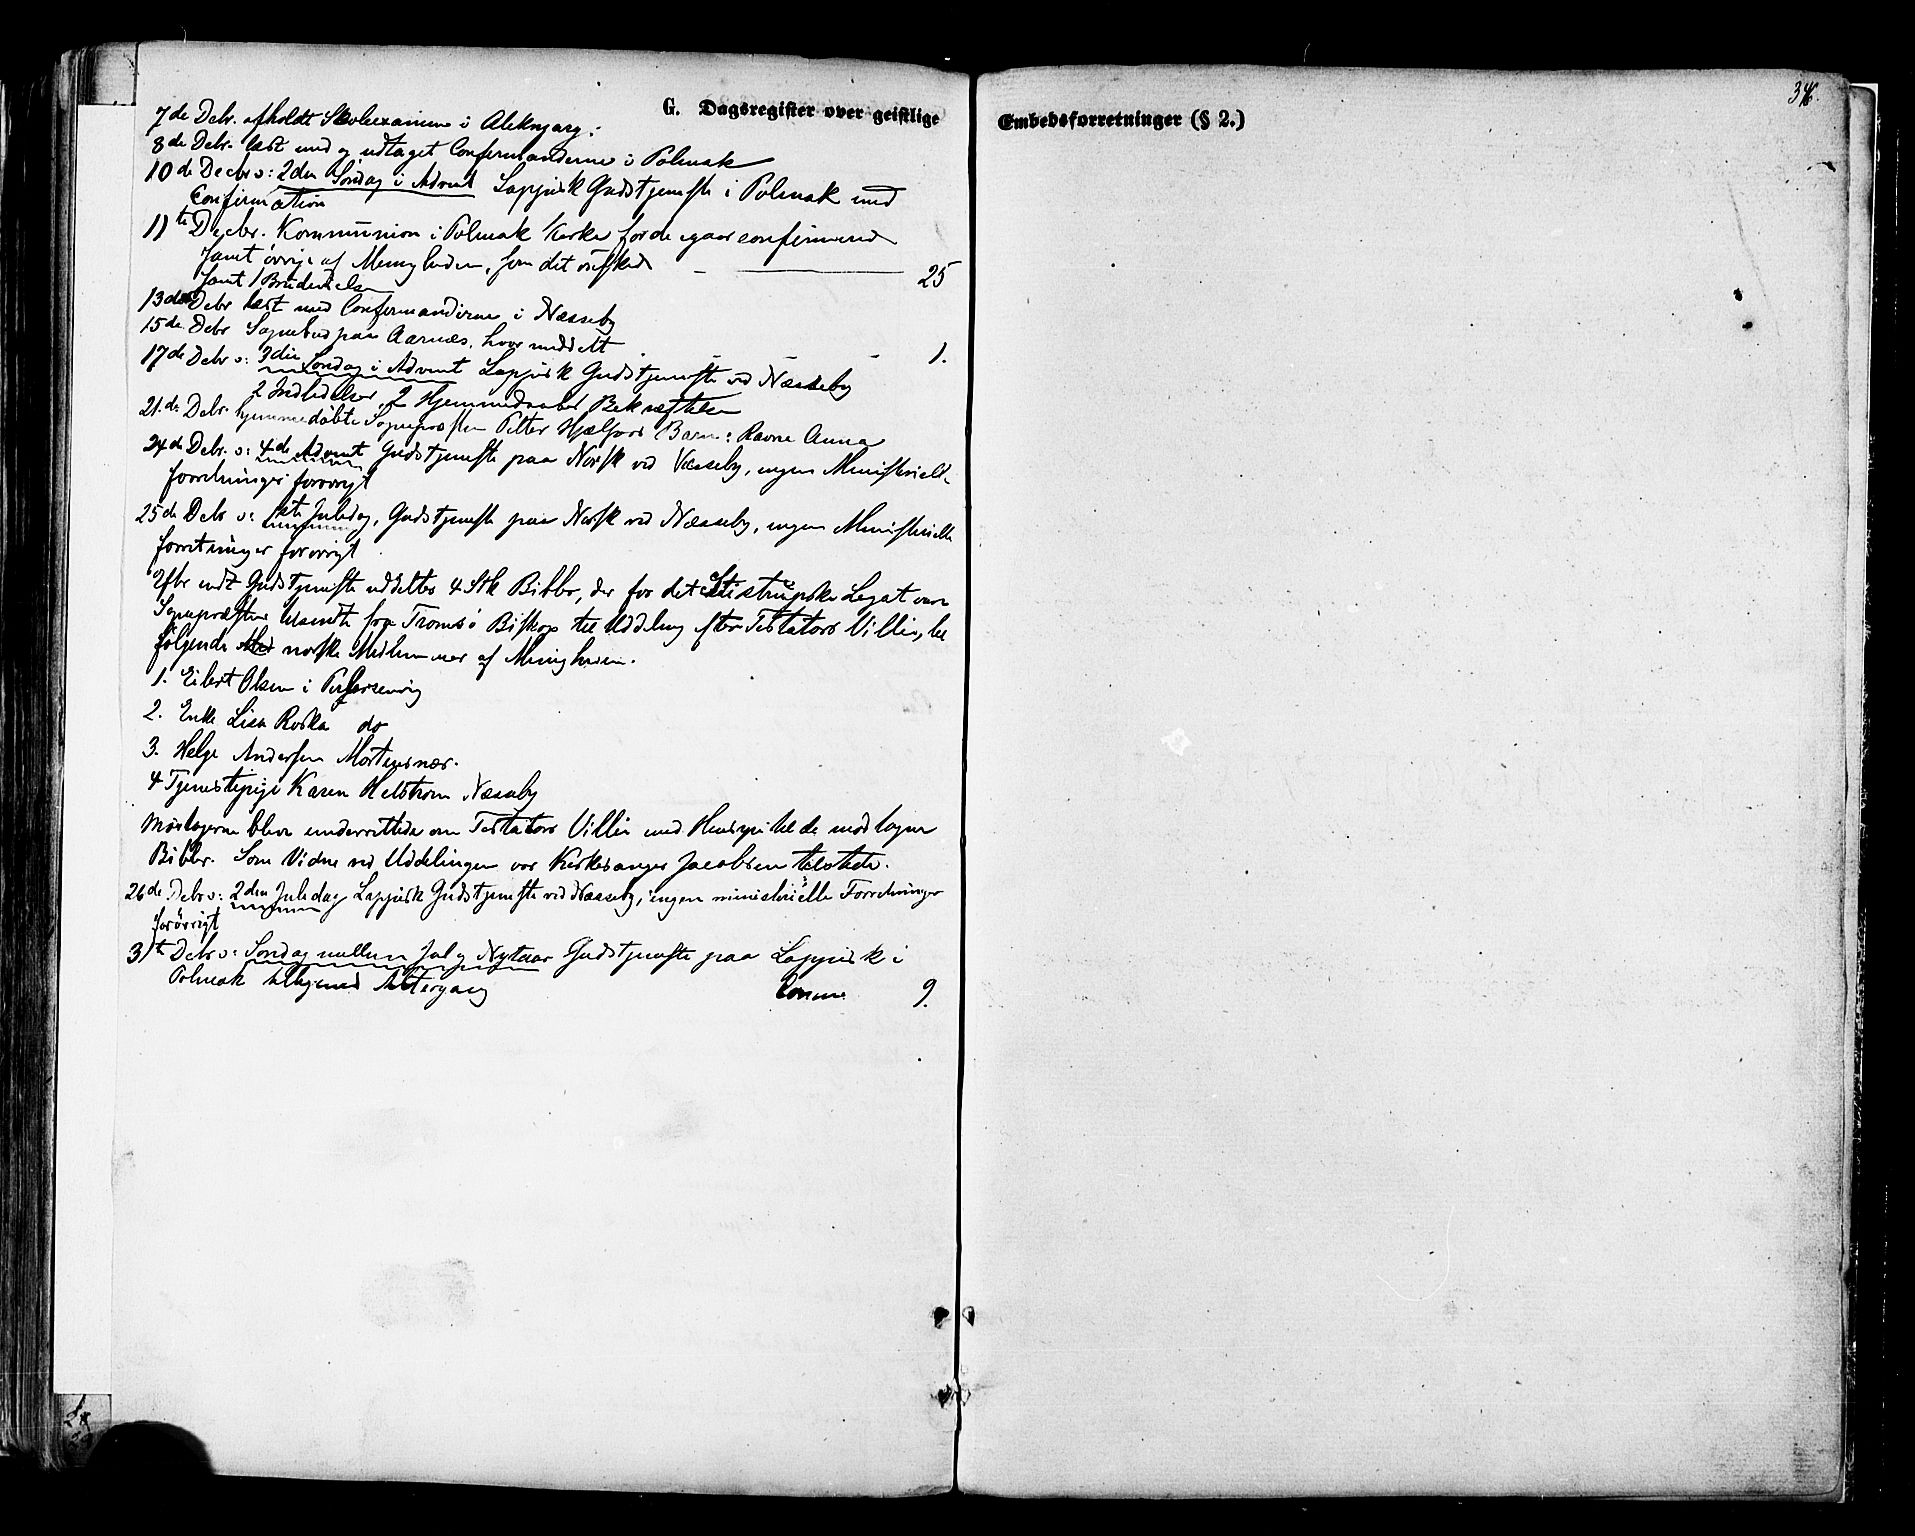 G. Dagsregister over geistlige
Embedsforretninger (§ 2.)
34
7de Debr. afholdt Skoleexamen i Aleknjarg.
8de Debr. læst med og udtaget Confirmanderne i Polmak
10de Decbr ɔ: 2den Søndag i Advent Lappisk Gudstjeneste i Polmak med
Confirmation
11te Decbr. Kommunion i Polmak Kirke for de igaar confirmerede
samt øvrige af Menigheden, som det ønskede 25
samt 1 Brudevielse
13de Debr læst med Confirmanderne i Næsseby
15de Debr Sognebud paa Aarnæs, hvor meddelt 1.
17de Debr ɔ: 3die Søndag i Advent Lappisk Gudstjeneste ved Næsseby
2 Indledelser, 2 Hjemmedaabs Bekræftelser
21de Debr. hjemmedøbte Sognepræsten Petter Hjælfors Barn: Ravna Anna
24de Debr. ɔ: 4de Advent Gudstjeneste paa Norsk ved Næsseby, ingen Ministerielle
forretninger forøvrigt
25de Debr ɔ: 1ste Juledag, Gudstjeneste paa Norsk ved Næsseby, ingen Ministerielle
forretninger forøvrigt
Efter endt Gudstjeneste uddeltes 4 Stk Bibler, der for det Stistrupske Legat vare
Sognepræsten tilsendte fra Tromsø Biskop til Uddeling efter Testators Villie, til
følgende norske Medlemmer af Menigheden.
1. Eilert Olsen i
2. Enke Lisa Roska do
3. Helge Andersen Mortensnæs.
4 Tjenestepige Karen Helstrom Næsseby
Modtagerne bleve underrettede om Testators Villie med Hensyn til de modtagne
Bibler. Som Vidne ved Uddelingen var Kirkesanger Jacobsen tilstede.
26de Debr ɔ: 2den Juledag Lappisk Gudstjeneste ved Næsseby, ingen ministerielle Forretninger
forøvrigt
31te Debr ɔ: Søndag mellem Jul og Nytaar Gudstjeneste paa Lappisk i
Polmak tilligemed Altergang Comm. 9.